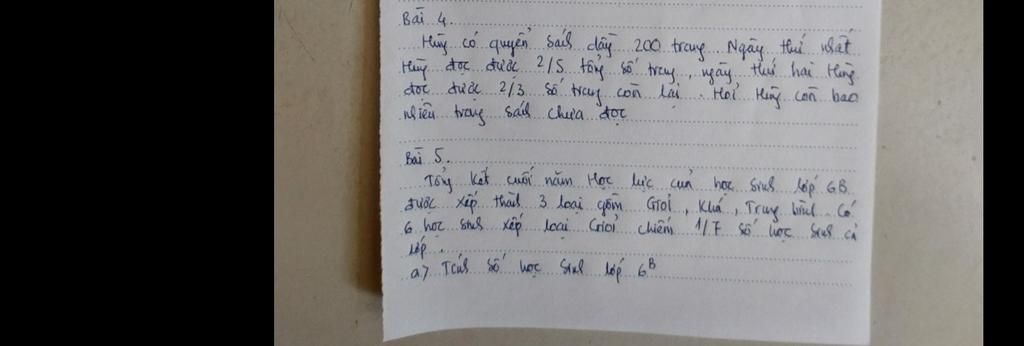 Bài 4.
Hùng có quyển sách dày 200 trang. Ngày thứ nhất
Hùng đọc được 2/5 tổng số trang, ngày thứ hai Hùng
đọc được 2/3 số trang còn lại. Hỏi Hùng còn bao
nhiêu trang sách chưa đọc
Bài 5.
Tổng kết cuối năm Học lực của học sinh lớp 6B
được xếp thành 3 loại gồm Giỏi, Khá, Trung bình. Có
6 học sinh xếp loại Giỏi chiếm 1/7 số học sinh cả
lớp.
a) Tính số học sinh lớp 6B